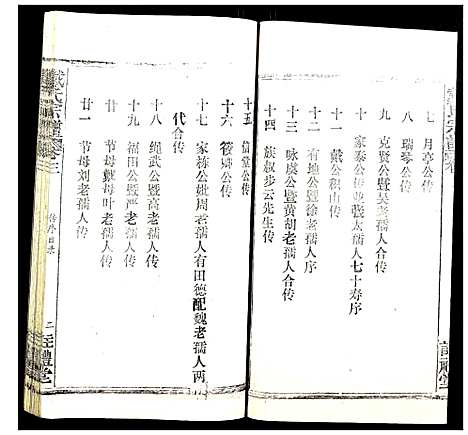 七 月亭公传
八 瑞琴公传
九 克贤公暨吴老孺人合传
十 家泰公传并张太孺人七十寿序
十一 戴公积山传
十二 有地公暨徐老孺人序
十三 咏虞公暨黄胡老孺人合传
十四 族叔步云先生传
十五 信堂公传
十六 公传
十七 家栋公妣周老孺人有田德配魏老孺人两
代合传
十八 绳武公暨高老孺人传
十九 福田公暨严老孺人传
廿 节母戴母叶老孺人传
廿一 节母刘老孺人传
戴氏宗谱卷三
传序目录
二 注礼堂